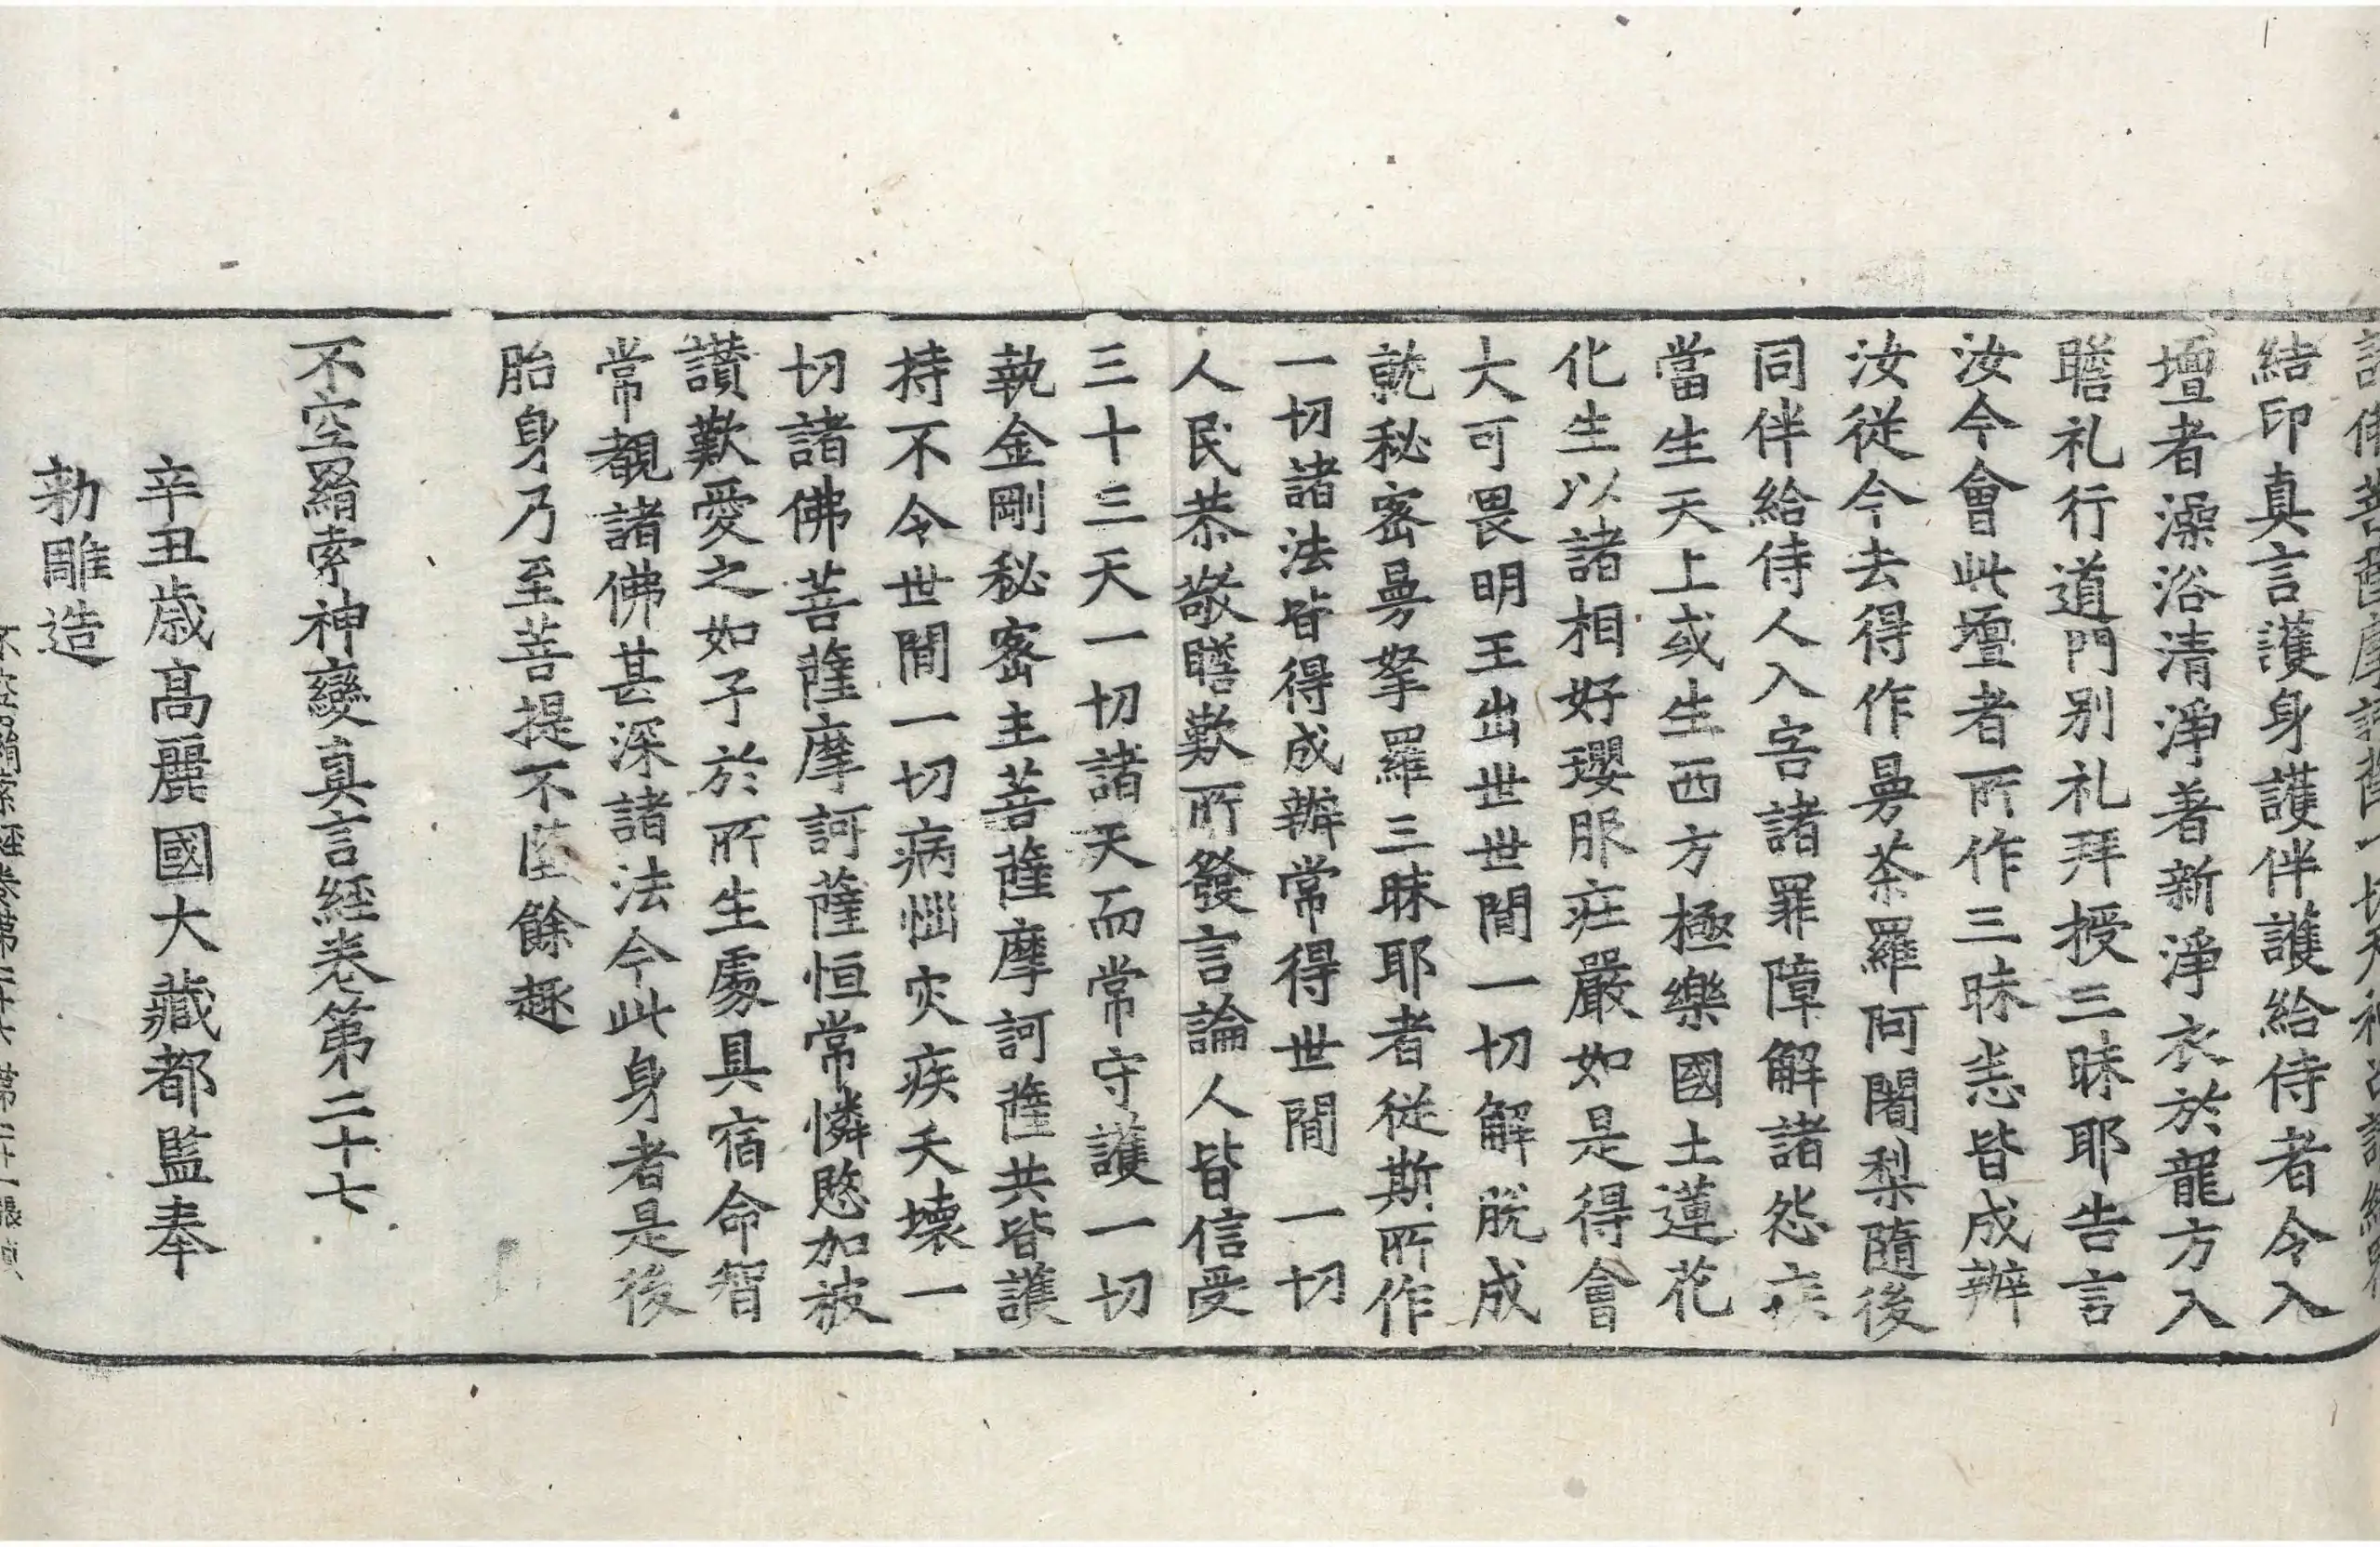 結印真言護身護伴護給侍者令入
壇者澡浴清淨著新淨衣於龍方入
瞻礼行道門別礼拜授三昧耶告言
汝今會此壇者所作三昧恙皆成辦
汝從今去得作曼荼羅阿闍梨隨後
同伴給侍人入𡧱諸罪障解諸怨疾
當生天上或生西方極樂國土蓮花
化生以諸相好瓔服莊嚴如是得會
大可畏明王出世世間一切解脫成
就秘密曼拏羅三昧耶者從斯所作
一切諸法皆得成辦常得世間一切
人民恭敬瞻歎所發言論人皆信受
三十三天一切諸天而常守護一切
執金剛秘密主菩薩摩訶薩共皆護
持不令世間一切病惱灾疾夭壞一
切諸佛菩薩摩訶薩恒常憐愍加被
讚歎愛之如子於所生處具宿命智
常覩諸佛甚深諸法今此身者是後
胎身乃至菩提不墮餘趣
不空羂索神變真言經卷第二十七
辛丑歲高麗國大藏都監奉
勅雕造